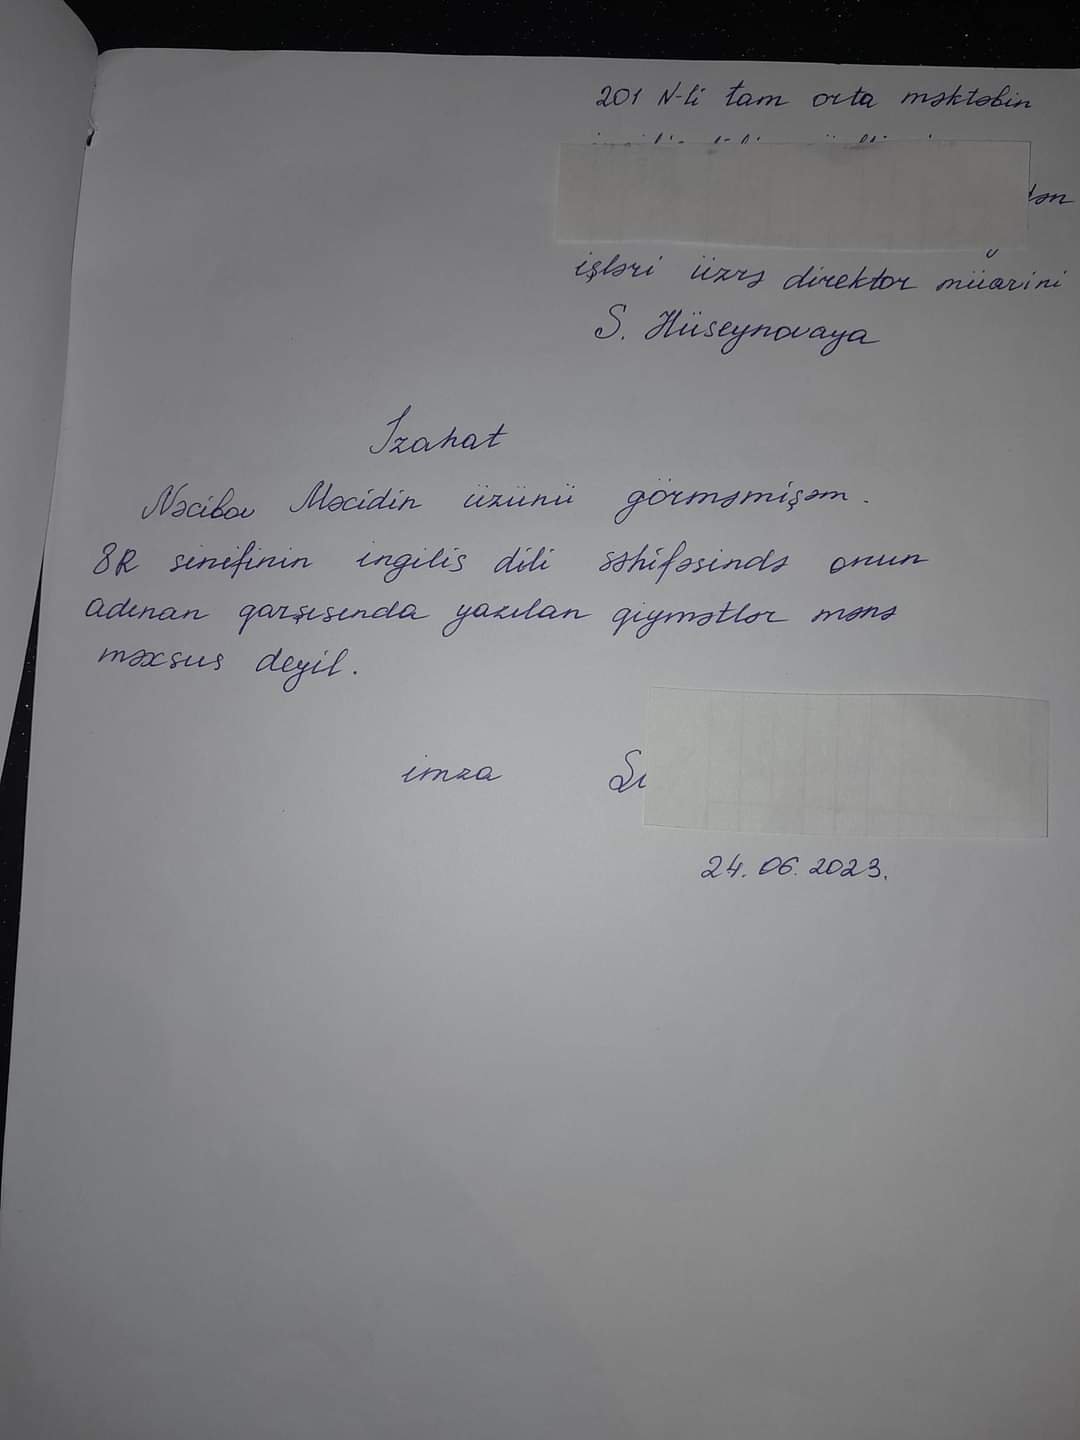 201 N-li tam orta məktəbin
dən
işləri üzrə direktor müavini
S. Hüseynovaya
İzahat
Nəcibov Məcidin üzünü görməmişəm.
8R sinifinin ingilis dili səhifəsində onun
adınan qarşısında yazılan qiymətlər mənə
məxsus deyil.
imza
24.06.2023.